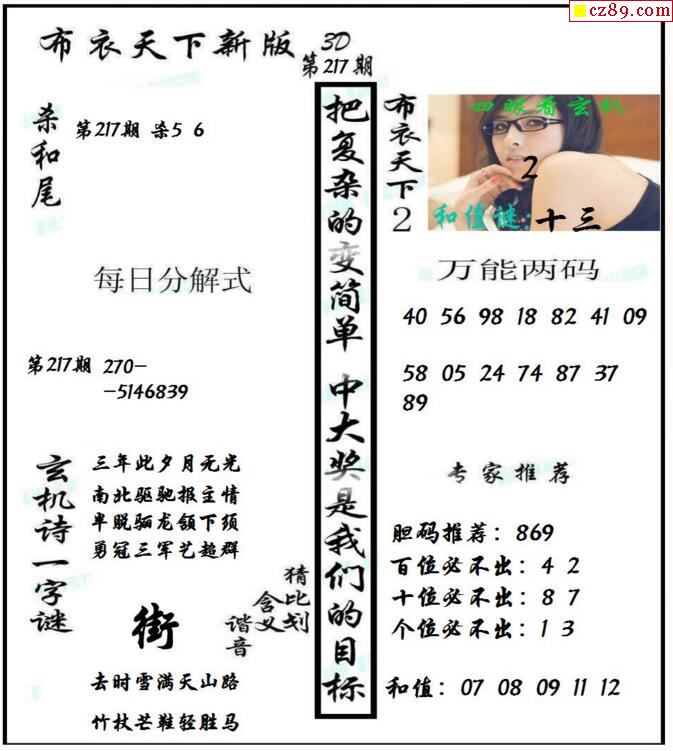 cz89.com
布衣天下新版 3D
第217期
杀和尾
第217期 杀5 6
每日分解式
第217期 270-
-5146839
玄机诗一字谜
三年此夕月无光
南北驱驰报主情
毕脱骊龙颔下须
勇冠三军艺超群
街
猜比划
含义
谐音
去时雪满天山路
竹杖芒鞋轻胜马
把复杂的变简单 中大奖是我们的目标
布衣天下2
四眼看玄机
2
和值谜:十三
万能两码
40 56 98 18 82 41 09
58 05 24 74 87 37
89
专家推荐
胆码推荐：869
百位必不出：4 2
十位必不出：8 7
个位必不出：1 3
和值：07 08 09 11 12